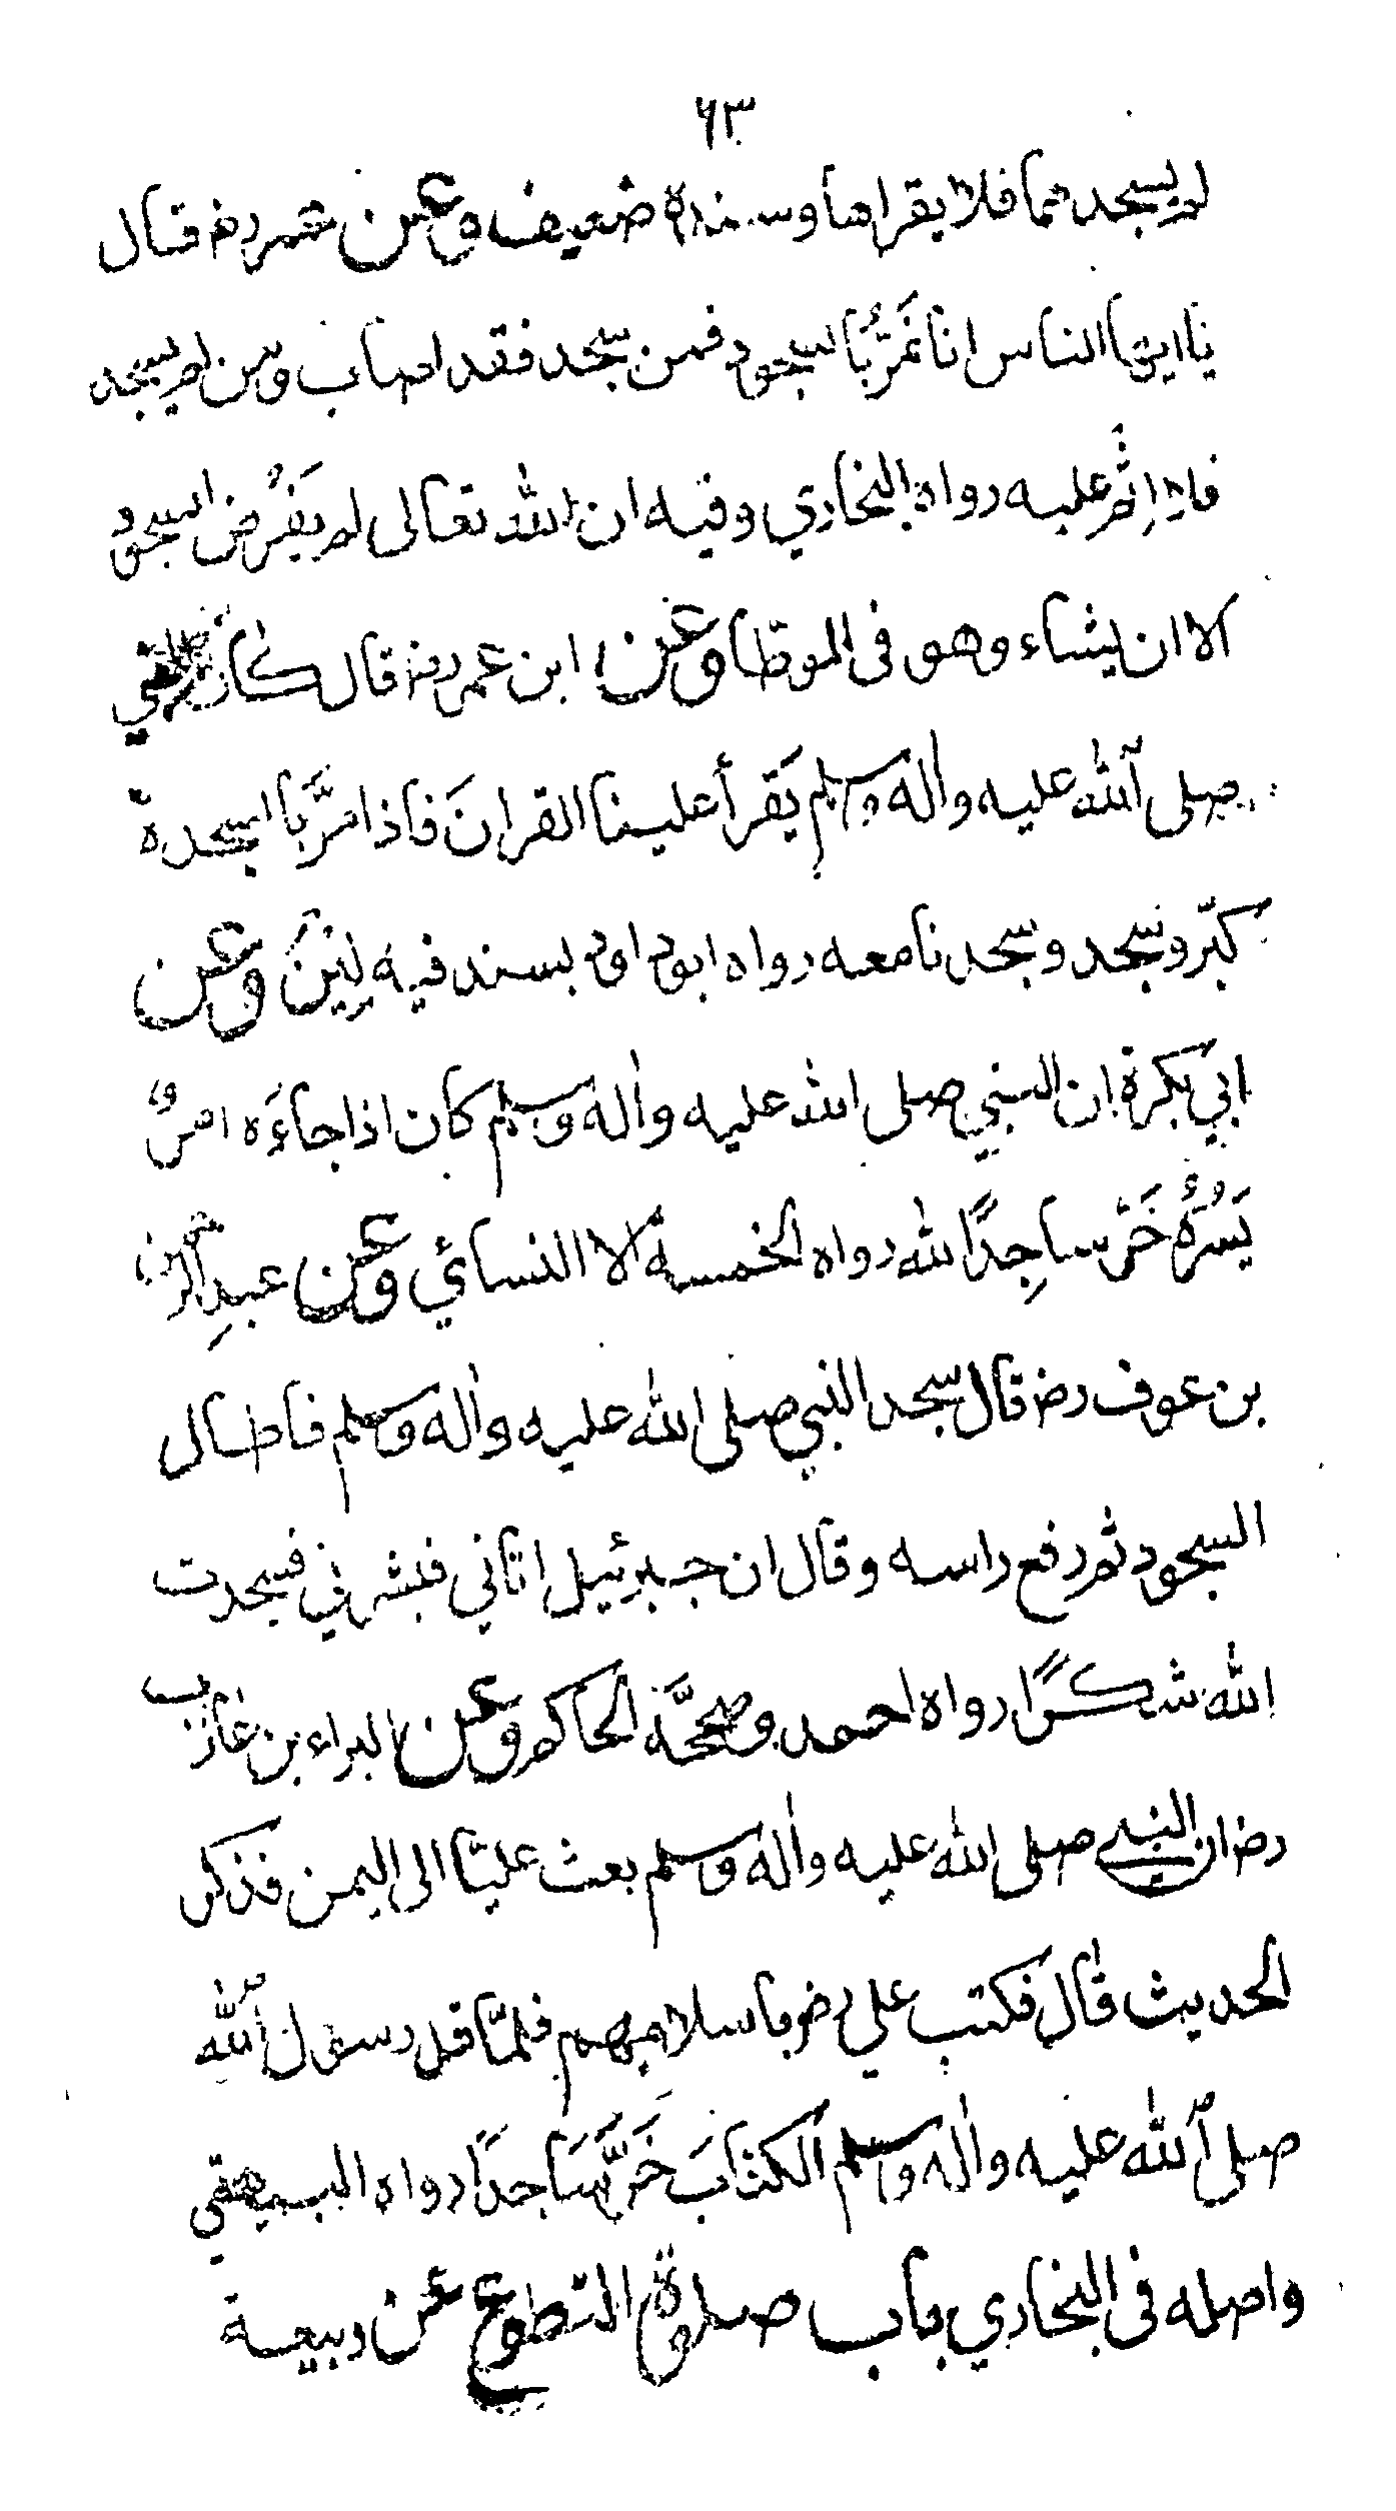 ٦٣
لم يسجدهما فلا يقراها وسنده ضعيف وعن عمر رض قال
يا ايها الناس انا نَمُرُّ بالسجود فمن سجد فقد اصاب ومن لم يسجد
فلا اِثم عليه رواه البخاري وفيه ان الله تعالى لم يَفرُض السجود
الا ان يشاء وهو فى الموطا وعن ابن عمر رض قال كان النبي
صلى الله عليه واله وسلم يَقرأ علينا القرانَ فاذا مرَّ بالسجدة
كبّر وسجد وسجدنا معه رواه ابوداود بسند فيه لِيْنٌ وعن
ابي بكرة ان النبي صلى الله عليه واله وسلم كان اذا جاءَه امرٌ
يَسُرُّهُ خَرّ ساجِدًا لله رواه الخمسة الا النسائي وعن عبدِ الرحمن
بن عوف رض قال سجد النبي صلى الله عليه واله وسلم فاطال
السجود ثم رفع راسه وقال ان جبرئيل اتاني فبشرني فسجدت
لله شكرًا رواه احمد وصحّحَّه الحاكم وعن البراء بن عازب
رض ان النبي صلى الله عليه واله وسلم بعث عليّا الى اليمن فذكر
الحديث قال فكتب علي رض باسلامهم فلمّا قرا رسول الله
صلى الله عليه واله وسلم الكتابَ خَرَّ سَاجدًا رواه البيهقي
واصله فى البخاري باب صلوة التطوع عن ربيعة